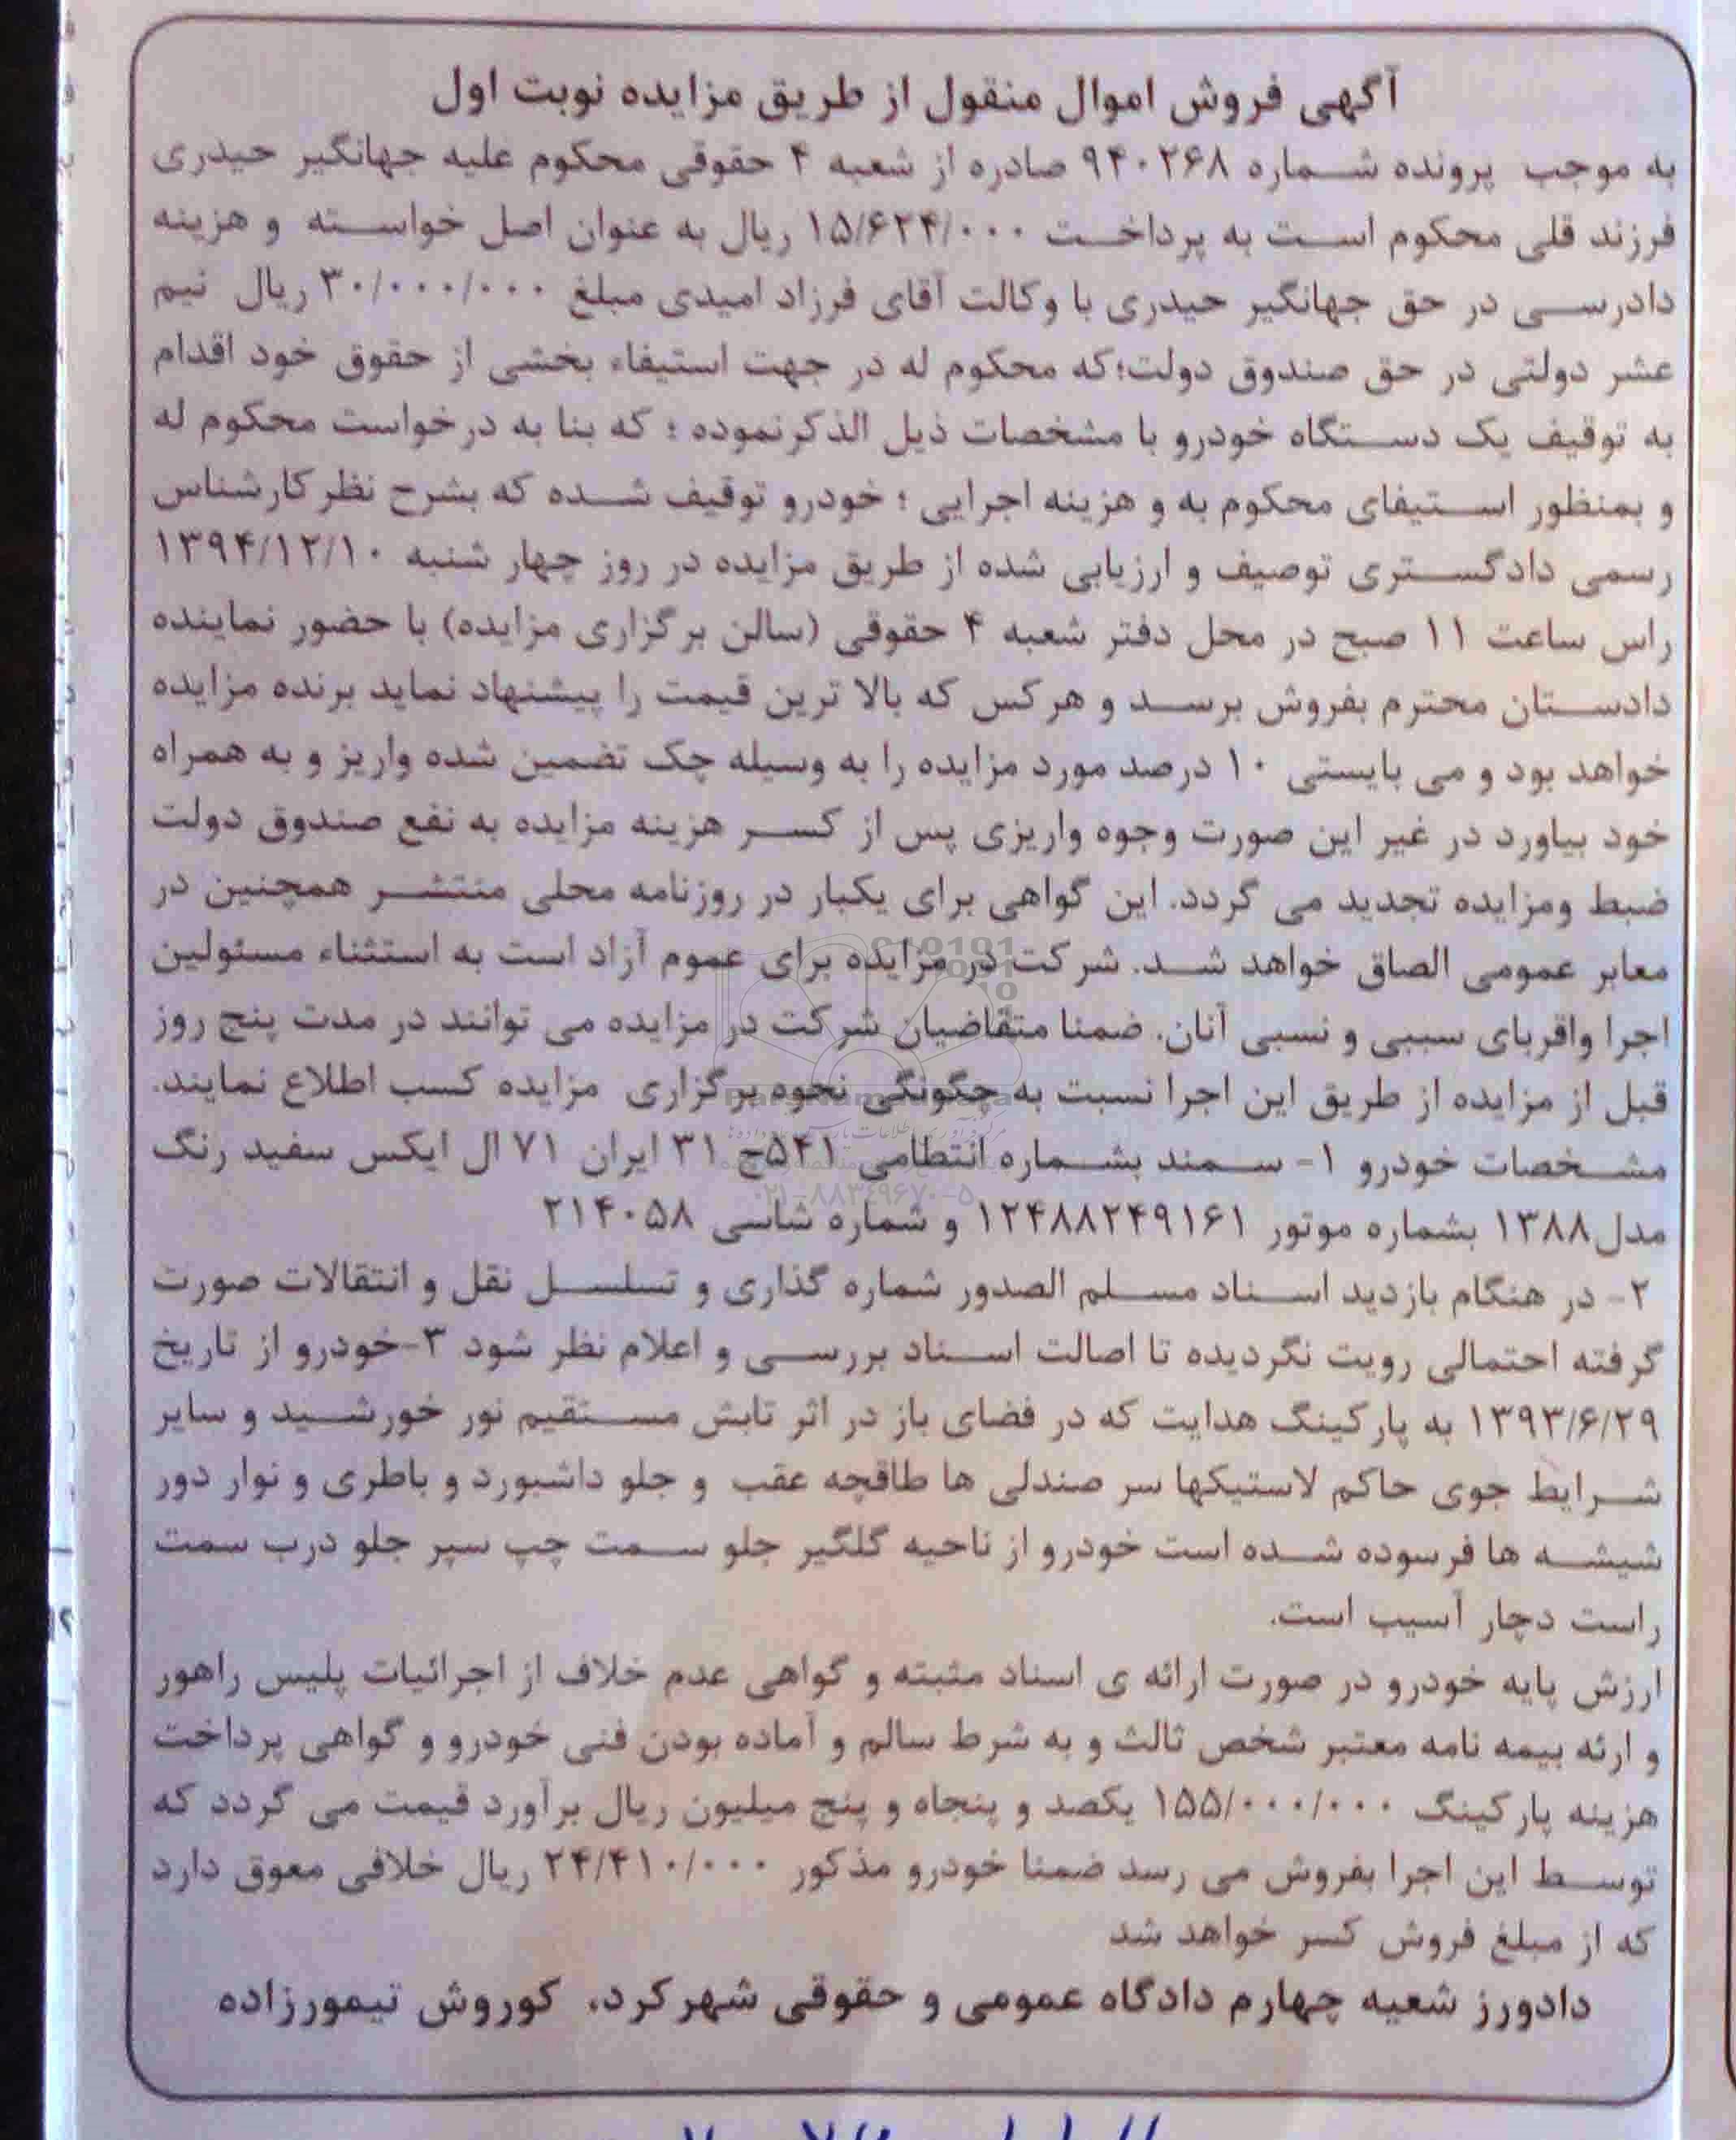 آگهی فروش اموال منقول از طریق مزایده نوبت اول
به موجب پرونده شماره ۹۴۰۲۶۸ صادره از شعبه ۴ حقوقی محکوم علیه جهانگیر حیدری
فرزند قلی محکوم است به پرداخت ۱۵/۶۲۴/۰۰۰ ریال به عنوان اصل خواسته و هزینه
دادرسی در حق جهانگیر حیدری با وکالت آقای فرزاد امیدی مبلغ ۳۰/۰۰۰/۰۰۰ ریال نیم
عشر دولتی در حق صندوق دولت؛که محکوم له در جهت استیفاء بخشی از حقوق خود اقدام
به توقیف یک دستگاه خودرو با مشخصات ذیل الذکرنموده ؛ که بنا به درخواست محکوم له
و بمنظور استیفای محکوم به و هزینه اجرایی ؛ خودرو توقیف شده که بشرح نظرکارشناس
رسمی دادگستری توصیف و ارزیابی شده از طریق مزایده در روز چهار شنبه ۱۳۹۴/۱۲/۱۰
راس ساعت ۱۱ صبح در محل دفتر شعبه ۴ حقوقی (سالن برگزاری مزایده) با حضور نماینده
دادستان محترم بفروش برسد و هرکس که بالا ترین قیمت را پیشنهاد نماید برنده مزایده
خواهد بود و می بایستی ۱۰ درصد مورد مزایده را به وسیله چک تضمین شده واریز و به همراه
خود بیاورد در غیر این صورت وجوه واریزی پس از کسر هزینه مزایده به نفع صندوق دولت
ضبط ومزایده تجدید می گردد. این گواهی برای یکبار در روزنامه محلی منتشر همچنین در
معابر عمومی الصاق خواهد شد. شرکت در مزایده برای عموم آزاد است به استثناء مسئولین
اجرا واقربای سببی و نسبی آنان. ضمنا متقاضیان شرکت در مزایده می توانند در مدت پنج روز
قبل از مزایده از طریق این اجرا نسبت به چگونگی نحوه برگزاری مزایده کسب اطلاع نمایند.
مشخصات خودرو ۱- سمند بشماره انتظامی ۵۴۱ج ۳۱ ایران ۷۱ ال ایکس سفید رنگ
۰۲۱-۸۸۳۴۹۶۷۰-۵
مدل۱۳۸۸ بشماره موتور ۱۲۴۸۸۲۴۹۱۶۱ و شماره شاسی ۲۱۴۰۵۸
۲- در هنگام بازدید اسناد مسلم الصدور شماره گذاری و تسلسل نقل و انتقالات صورت
گرفته احتمالی رویت نگردیده تا اصالت اسناد بررسی و اعلام نظر شود ۳-خودرو از تاریخ
۱۳۹۳/۶/۲۹ به پارکینگ هدایت که در فضای باز در اثر تابش مستقیم نور خورشید و سایر
شرایط جوی حاکم لاستیکها سر صندلی ها طاقچه عقب و جلو داشبورد و باطری و نوار دور
شیشه ها فرسوده شده است خودرو از ناحیه گلگیر جلو سمت چپ سپر جلو درب سمت
راست دچار آسیب است.
ارزش پایه خودرو در صورت ارائه ی اسناد مثبته و گواهی عدم خلاف از اجرائیات پلیس راهور
و ارئه بیمه نامه معتبر شخص ثالث و به شرط سالم و آماده بودن فنی خودرو و گواهی پرداخت
هزینه پارکینگ ۱۵۵/۰۰۰/۰۰۰ یکصد و پنجاه و پنج میلیون ریال برآورد قیمت می گردد که
توسط این اجرا بفروش می رسد ضمنا خودرو مذکور ۲۴/۴۱۰/۰۰۰ ریال خلافی معوق دارد
که از مبلغ فروش کسر خواهد شد
دادورز شعبه چهارم دادگاه عمومی و حقوقی شهرکرد. کوروش تیمورزاده